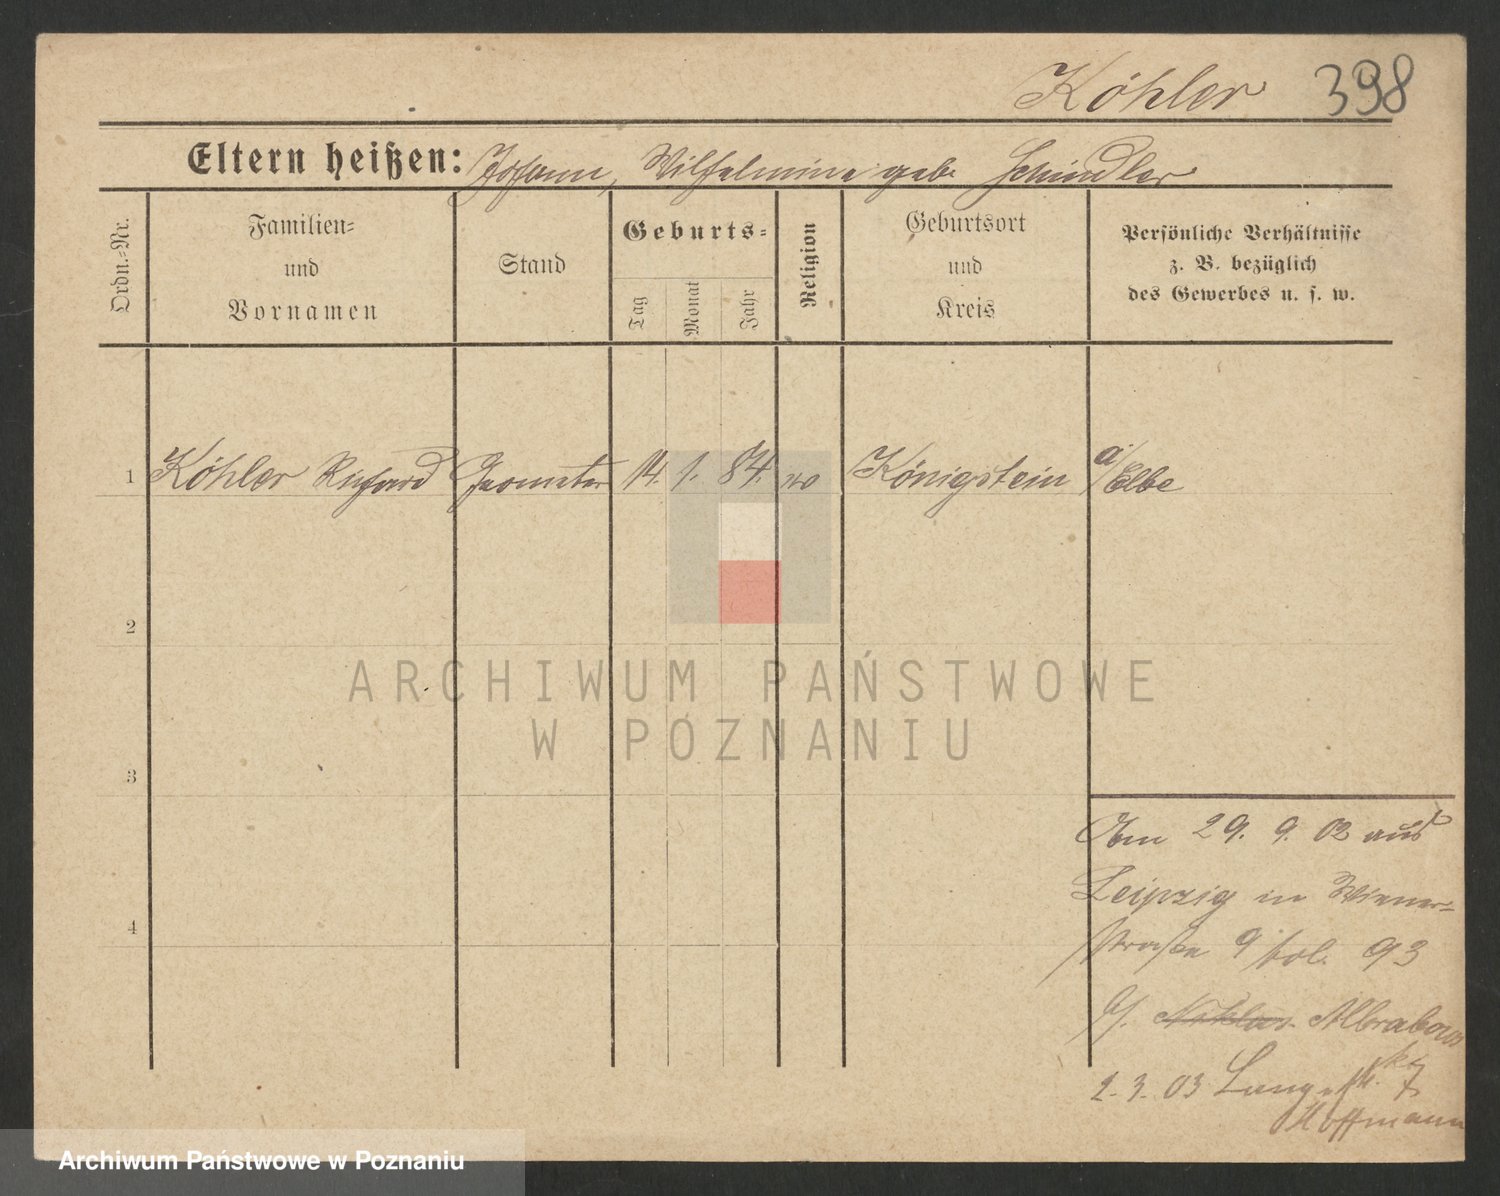 Köhler 398
Eltern heißen: Johann, Wilhelmine geb. Schindler
Ordn.-Nr.
Familien-
und
Vornamen
Stand
Geburts-
Tag
Monat
Jahr
Religion
Geburtsort
und
Kreis
Persönliche Verhältnisse
z. B. bezüglich
des Gewerbes u. s. w.
1 Köhler Richard Geometer 14. 1. 84. Königstein a/Elbe
2
3
4
Am 29. 9. 02 aus
Leipzig in Wiener-
straße 9 fol. 93
b/. Niklas
2. 3. 03 Langestr. 7
Hoffmann
ARCHIWUM PAŃSTWOWE
W POZNANIU
Archiwum Państwowe w Poznaniu